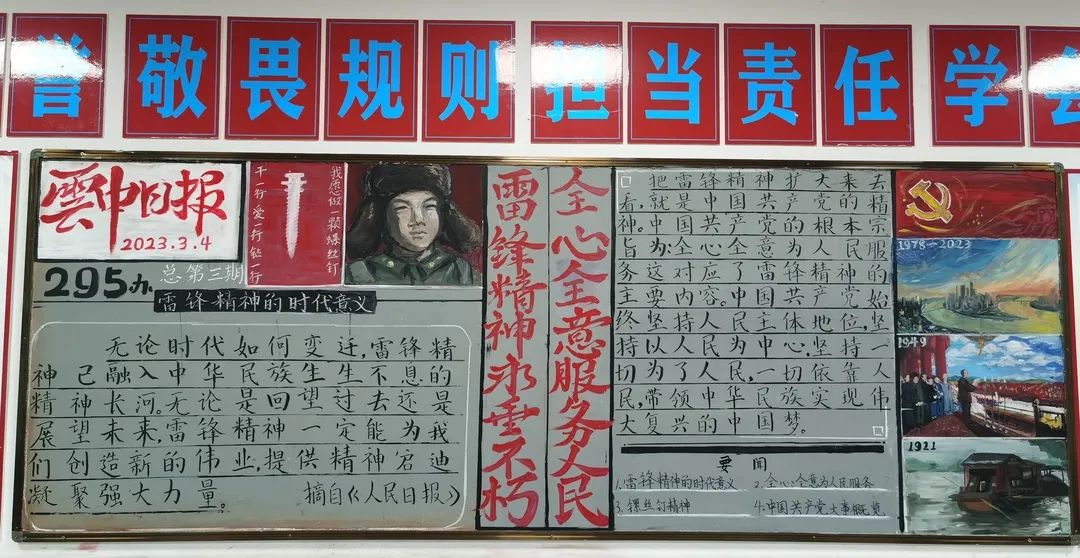 誉 敬 畏 规 则 担 当 责 任 学 会
雲中日报
2023.3.4
295办
总第三期
干一行爱一行钻一行
我愿做一颗螺丝钉
雷锋精神的时代意义
无论时代如何变迁,雷锋精
神已融入中华民族生生不息的
精神长河。无论是回望过去还是
展望未来,雷锋精神一定能为我
们创造新的伟业,提供精神启迪
凝聚强大力量。 摘自《人民日报》
雷锋精神永垂不朽
全心全意为人民服务
把雷锋精神扩大来去
看,就是中国共产党的精
神。中国共产党的根本宗
旨为:全心全意为人民服
务这对应了雷锋精神的
主要内容。中国共产党始
终坚持人民主体地位,坚
持以人民为中心,坚持一
切为了人民,一切依靠人
民,带领中华民族实现伟
大复兴的中国梦。
要闻
1.雷锋精神的时代意义 2.全心全意为人民服务
3.螺丝钉精神 4.中国共产党大事概览
1978-2023
1949
1921